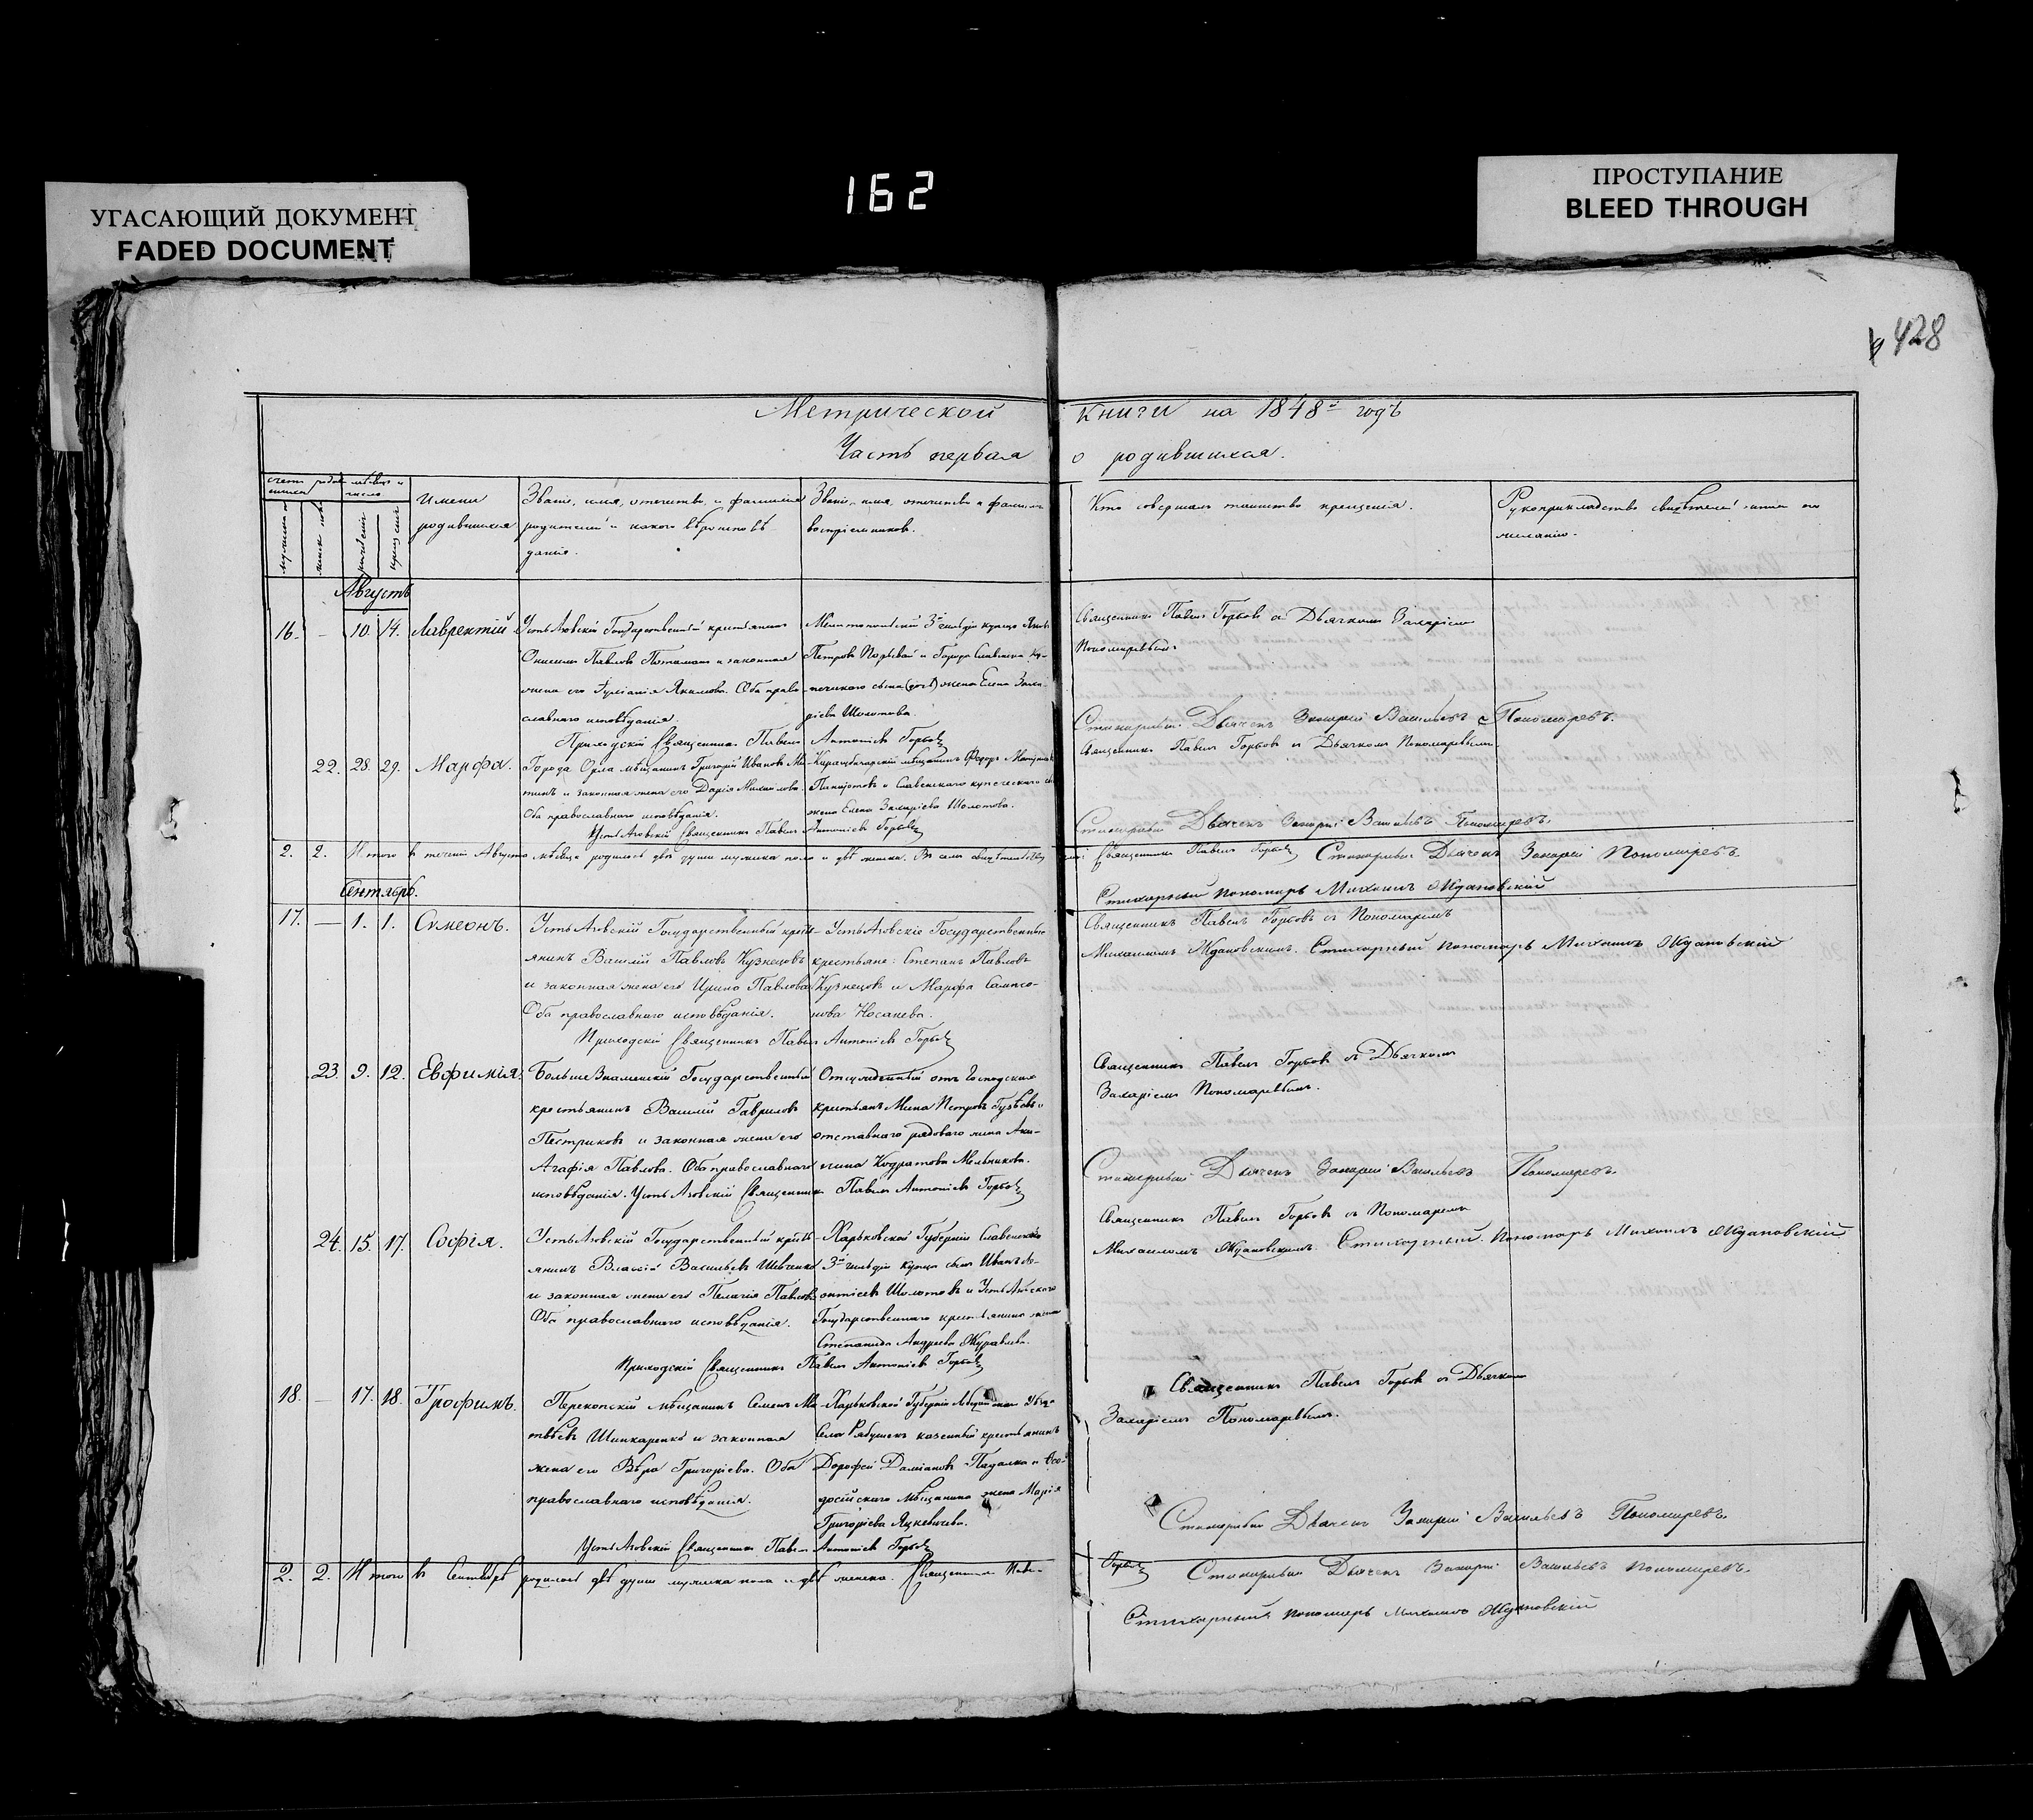 162
УГАСАЮЩИЙ ДОКУМЕНТ
FADED DOCUMENT
ПРОСТУПАНИЕ
BLEED THROUGH
428
Метрической книги на 1848й годъ
Часть первая о родившихся.
Имена родившихся
Званіе, имя, отечество, и фамилія родителей и какого вѣроисповѣданія.
Званіе, имя, отечество и фамилія воспріемниковъ.
Кто совершалъ таинство крещенія.
Рукоприкладство свидѣтелей записи по желанію.
Августъ
16. — 10. 14. Лаврентій
УстьАзовскій Государственный крестьянинъ
Онисимъ Павловъ и законная
жена его Якимова. Оба право-
славнаго исповѣданія.
Мелитопольскій 3й гильдіи купецъ Яковъ
Петровъ и Города Славянска Ку-
печескаго сына жена Елена Заха-
ріева Шолотова.
Приходскій Священникъ Павелъ Антоніевъ Горбов
Священникъ Павелъ Горбовъ съ Дьячкомъ Захаріемъ
Пономаревымъ.
Стихарный Дьячекъ Захарій Васильевъ Пономаревъ.
22. 28. 29. Марфа.
Города Орла мѣщанинъ Григорій Ивановъ Ми-
тинъ и законная жена его Дарія Михайлова.
Оба православнаго исповѣданія.
Карасубазарскій мѣщанинъ Федоръ
и Славенскаго купеческаго
жена Елена Захаріева Шолотова.
УстьАзовскій Священникъ Павелъ Антоніевъ Горбов
Священникъ Павелъ Горбовъ съ Дьячкомъ Пономаревымъ.
Стихарный Дьячекъ Захарій Васильевъ Пономаревъ.
2. 2. Итого въ теченіи Августа мѣсяца родилось двѣ души мужеска пола и двѣ женска.
Священникъ Павелъ Горбов Стихарный Дьячекъ Захарій Пономаревъ
Стихарный пономарь Михаилъ Ждановскій
Сентябрь.
17. — 1. 1. Симеонъ.
УстьАзовскій Государственный кресть-
янинъ Василій Павловъ Кузнецовъ
и законная жена его Ирина Павлова
Оба православнаго исповѣданія.
УстьАзовскіе Государственные
крестьяне: Степанъ Павловъ
Кузнецовъ и Марфа Сампсо-
нова Носачева.
Приходскій Священникъ Павелъ Антоніевъ Горбов
Священникъ Павелъ Горбовъ съ Пономаремъ
Михаиломъ Ждановскимъ. Стихарный пономарь Михаилъ Ждановскій
23. 9. 12. Евфимія.
БольшеЗнаменскій Государственный
крестьянинъ Василій Гавриловъ
Пестриковъ и законная жена его
Агафія Павлова. Оба православнаго
исповѣданія. УстьАзовскій Священникъ Павелъ Антоніевъ Горбов
Отсужденный отъ Господскихъ
крестьянъ Мина Петровъ и
отставнаго рядоваго жена Аку-
лина Кодратова Мельникова.
Священникъ Павелъ Горбовъ съ Дьячкомъ
Захаріемъ Пономаревымъ.
Стихарный Дьячекъ Захарій Васильевъ Пономаревъ.
24. 15. 17. Софія.
УстьАзовскій Государственный кресть-
янинъ Власій Васильевъ Шевченко
и законная жена его Пелагія Павлова
Оба православнаго исповѣданія.
Харьковской Губерніи Славенскаго
3й гильдіи купца сынъ Иванъ Ле-
онтіевъ Шолотовъ и УстьАзовскаго
Государственнаго крестьянина жена
Степанида Андреева Журавлева.
Приходскій Священникъ Павелъ Антоніевъ Горбов
Священникъ Павелъ Горбовъ съ Пономаремъ
Михаиломъ Ждановскимъ. Стихарный Пономарь Михаилъ Ждановскій
18. — 17. 18. Трофимъ.
Перекопскій мѣщанинъ Семенъ Ма-
твѣевъ Шинкаренко и законная
жена его Вѣра Григоріева. Оба
православнаго исповѣданія.
Харьковской Губерніи Уѣзда
Села Рябушекъ казенный крестьянинъ
Дорофей Даміановъ Падалка и Ѳео-
досійскаго Мѣщанина жена Марія
Григоріева Яцкевичева.
УстьАзовскій Священникъ Павелъ Антоніевъ Горбов
Священникъ Павелъ Горбовъ съ Дьячкомъ
Захаріемъ Пономаревымъ.
Стихарный Дьячекъ Захарій Васильевъ Пономаревъ.
2. 2. Итого въ Сентябрѣ родилось двѣ души мужеска пола и двѣ женска. Священникъ Павелъ Горбов
Стихарный Дьячекъ Захарій Васильевъ Пономаревъ.
Стихарный пономарь Михаилъ Ждановскій